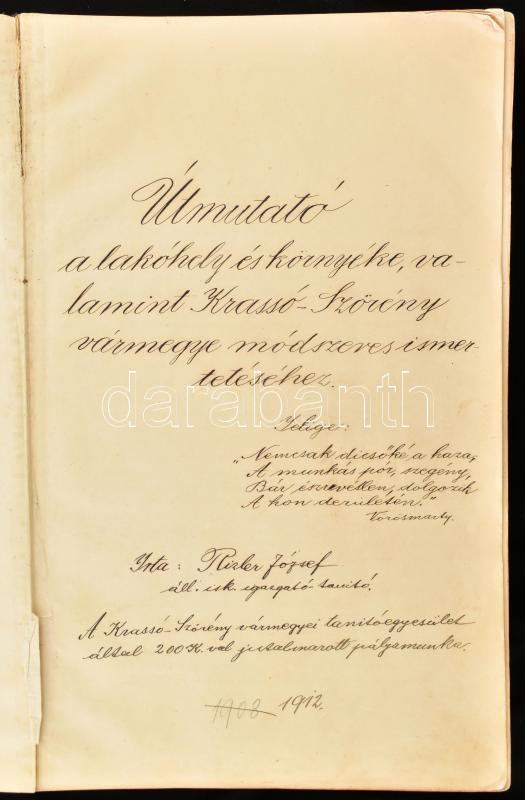 Útmutató
a lakóhely és környéke, va-
lamint Krassó-Szörény
vármegye módszeres ismer-
tetéséhez.
darabanth
Jelige:
„Nemcsak dicsőké a haza,
A munkás pór, szegény,
Bár észrevétlen, dolgozik
A hon derületén."
Vörösmarty.
Irta: Rizler József
áll. isk. igazgató-tanító.
A Krassó-Szörény vármegyei tanítóegyesület
által 200 K.-val jutalmazott pályamunka.
1908 1912.